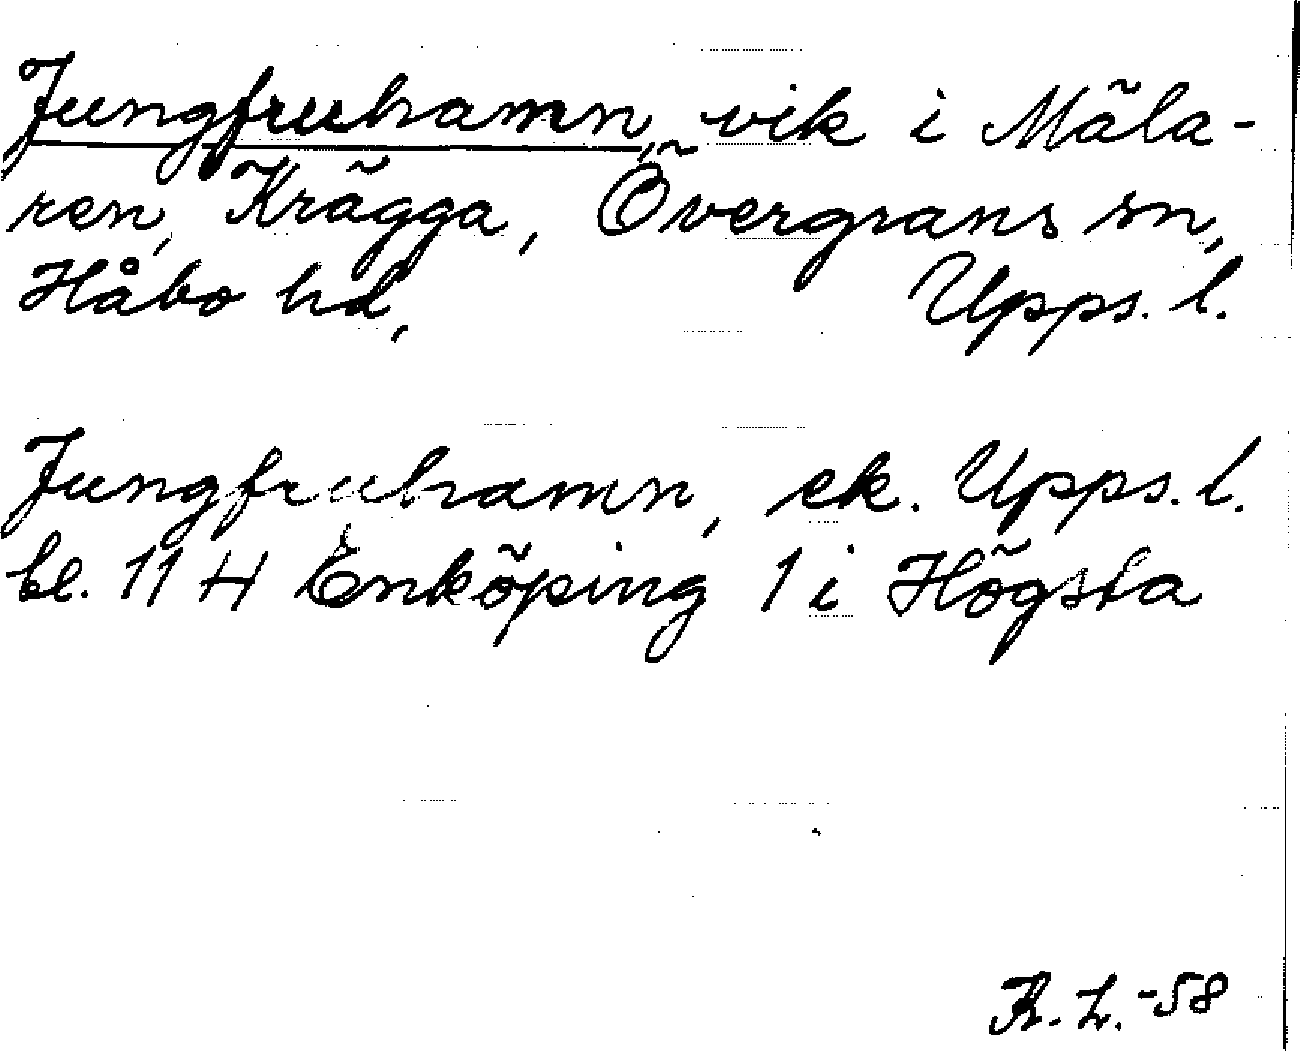 Jungfruhamn, vik i Mäla-
ren, Krägga, Övergrans sn,
Håbo hd, Upps. l.
Jungfruhamn, ek. Upps. l.
bl. 114 Enköping 1 i Högsta
R. L. -58